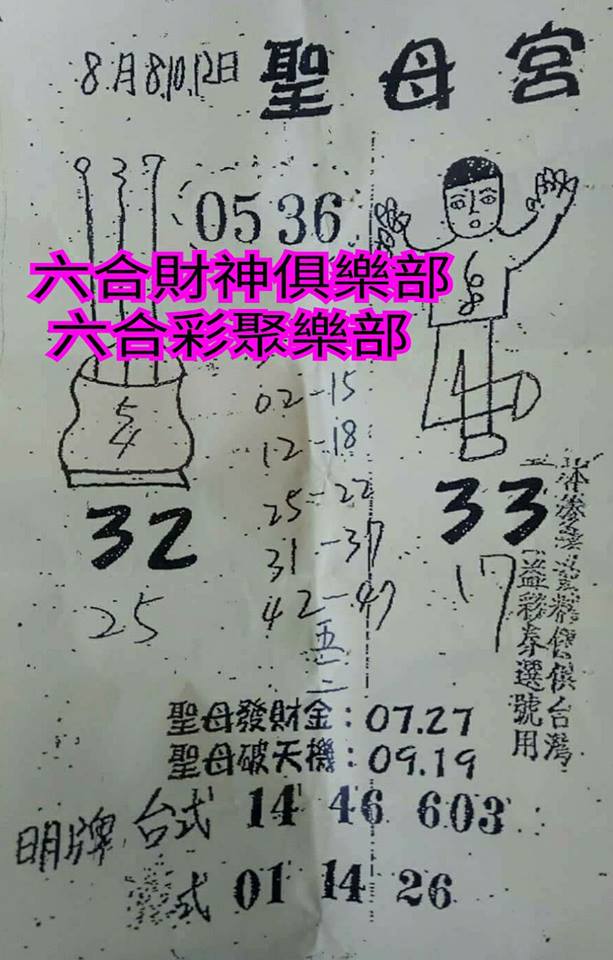 8月8,10,12日
聖母宮
9 3 7
05 36
六合財神俱樂部
六合彩聚樂部
68
02-15
12-18
25-22
31-37
42-47
5
4
32
33
25
17
五
二
聖母發財金：07.27
聖母破天機：09.19
明牌 台式 14 46 603
式 01 14 26
台灣
公益彩券選號用